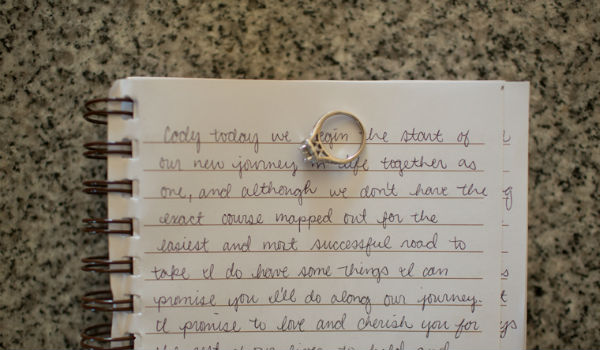 Cody today we begin the start of
our new journey in life together as
one, and although we don't have the
exact course mapped out for the
easiest and most successful road to
take I do have some things I can
promise you I'll do along our journey.
I promise to love and cherish you for
the rest of our lives to hold and